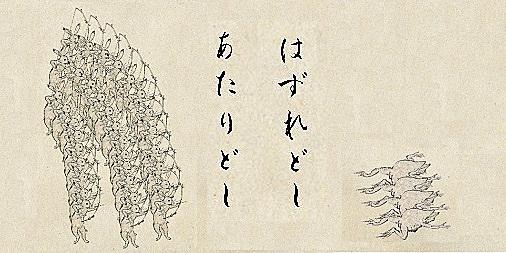 はずれどし
あたりどし